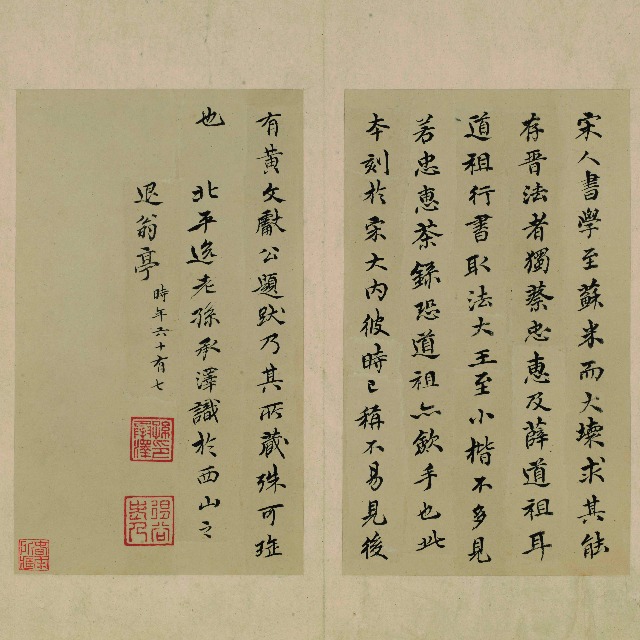 宋人書學至蘇米而大壞求其能
存晉法者獨蔡忠惠及薛道祖耳
道祖行書取法大王至小楷不多見
若忠惠荼錄恐道祖亦斂手也此
本刻於宋大內彼時已稱不易見後
有黃文獻公題跋乃其所藏殊可珍
也 北平逸老孫承澤識於西山之
退翁亭 時年六十有七
孫承澤印